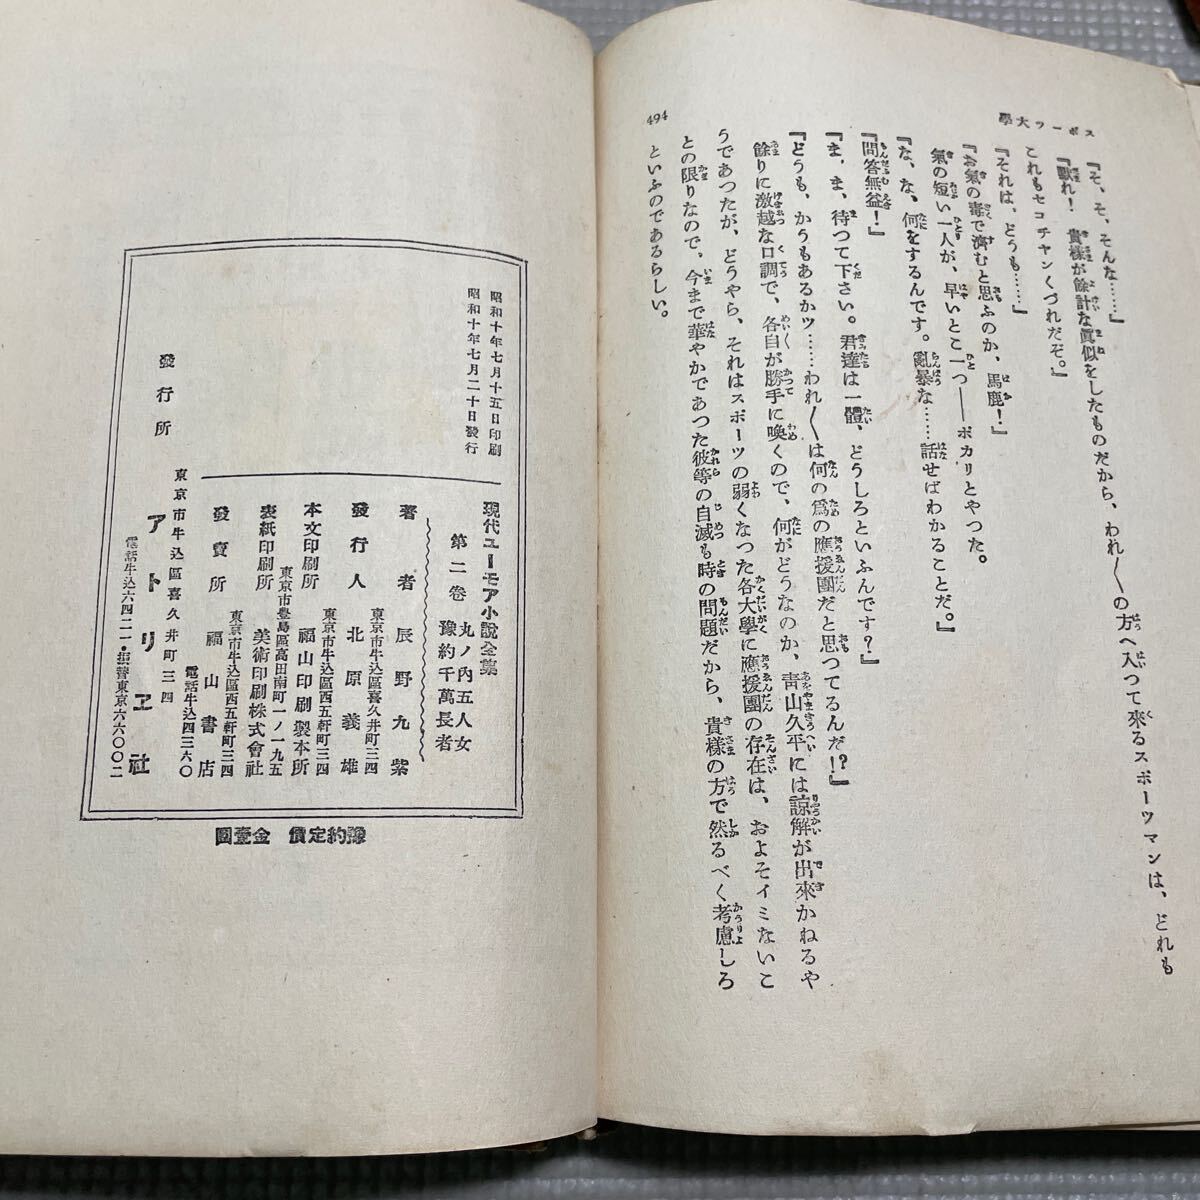 スポーツ大學
『そ、そ、そんな……』
『默れ! 貴樣が餘計な眞似をしたものだから、われ〳〵の方へ入つて來るスポーツマンは、どれも
これもセコチヤンくづれだぞ。』
『それは、どうも……』
『お氣の毒で濟むと思ふのか、馬鹿!』
氣の短い一人が、早いとこ一つ――ポカリとやつた。
『な、な、何をするんです。亂暴な……話せばわかることだ。』
『問答無益!』
『ま、ま、待つて下さい。君達は一體、どうしろといふんです?』
『どうも、かうもあるかツ……われ〳〵は何の爲の應援團だと思つてるんだ!?』
餘りに激越な口調で、各自が勝手に喚くので、何がどうなのか、靑山久平には諒解が出來かねるや
うであつたが、どうやら、それはスポーツの弱くなつた各大學に應援團の存在は、およそイミないこ
との限りなので、今まで華やかであつた彼等の自滅も時の問題だから、貴樣の方で然るべく考慮しろ
といふのであるらしい。
494
昭和十年七月十五日印刷
昭和十年七月二十日發行
現代ユーモア小說全集
第二卷 丸ノ內五人女
豫約千萬長者
著者 辰野九紫
東京市牛込區喜久井町三四
發行人 北原義雄
東京市牛込區西五軒町三四
本文印刷所 福山印刷製本所
東京市豊島區高田南町一ノ一九五
表紙印刷所 美術印刷株式會社
東京市牛込區西五軒町三四
發賣所 福山書店
電話牛込四三六〇
發行所
東京市牛込區喜久井町三四
アトリヱ社
電話牛込六四二一・振替東京六六〇〇二
豫約定價 金壹圓